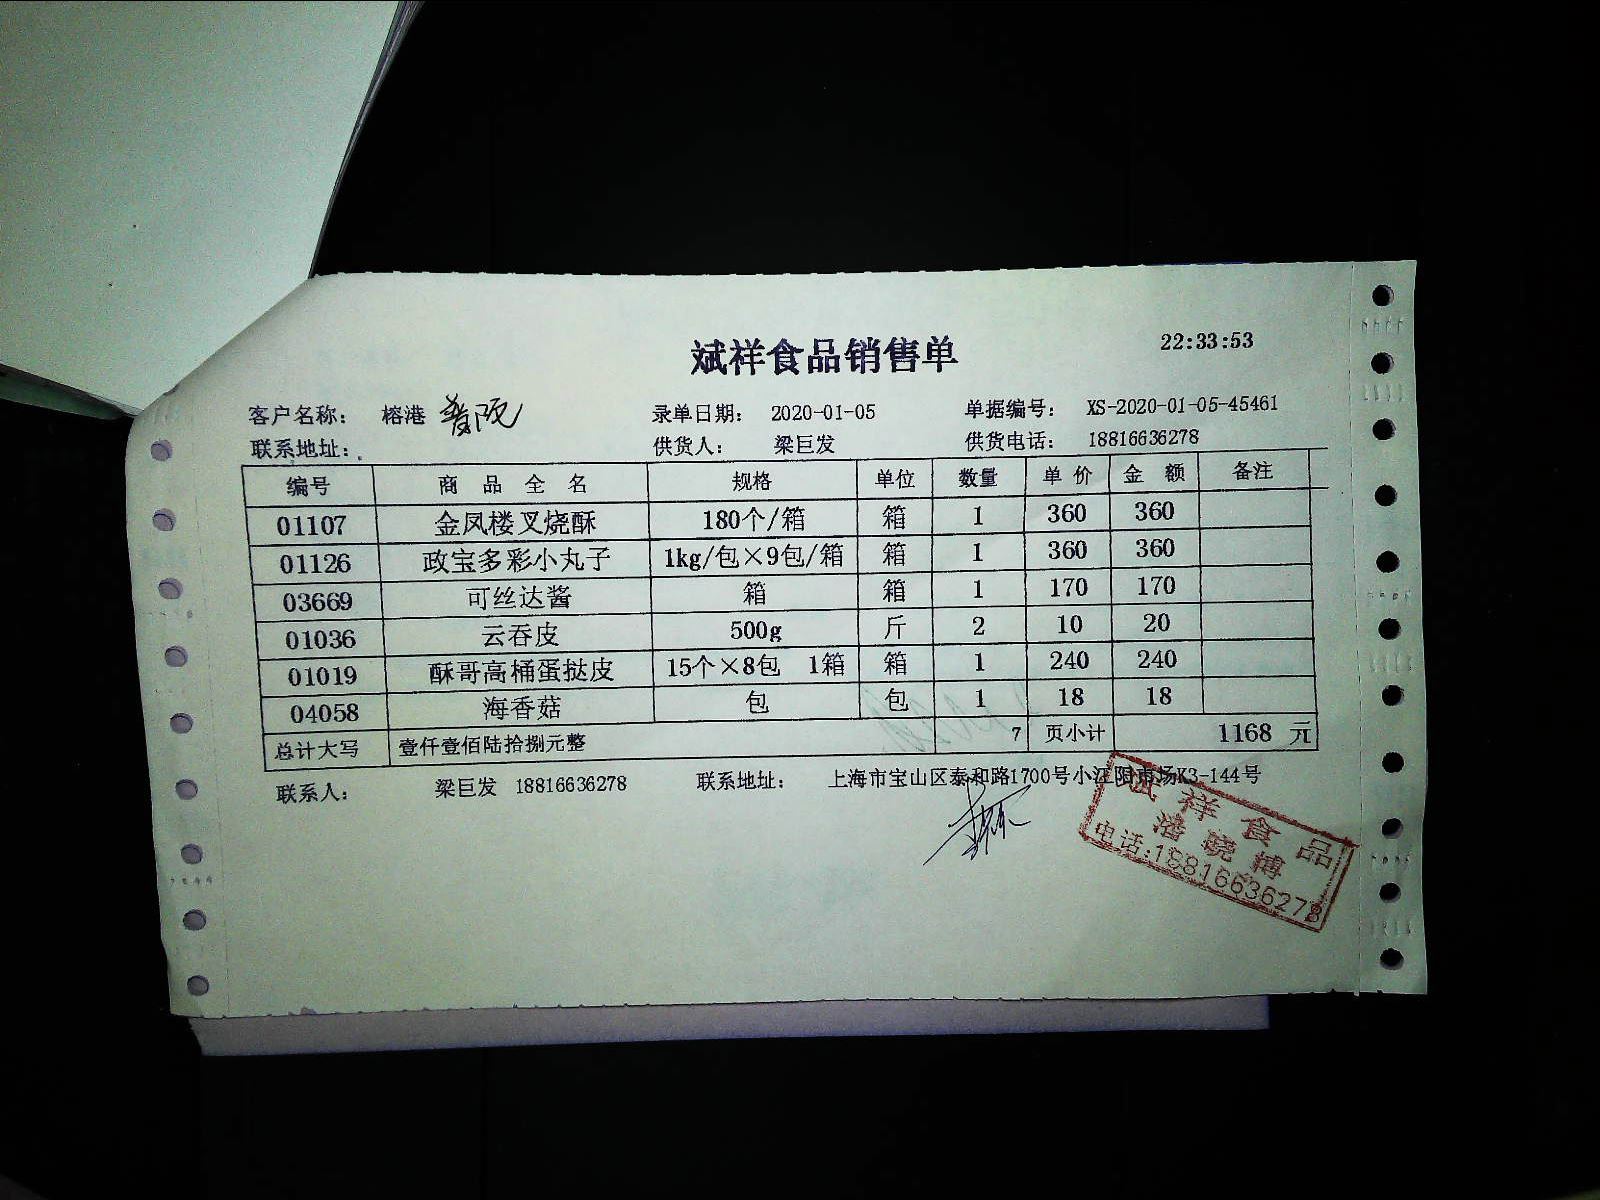 22:33:53
斌祥食品销售单
客户名称： 榕港 录单日期： 2020-01-05 单据编号： XS-2020-01-05-45461
联系地址： 供货人： 梁巨发 供货电话： 18816636278
编号 商品全名 规格 单位 数量 单价 金额 备注
01107 金凤楼叉烧酥 180个/箱 箱 1 360 360
01126 政宝多彩小丸子 1kg/包×9包/箱 箱 1 360 360
03669 可丝达酱 箱 箱 1 170 170
01036 云吞皮 500g 斤 2 10 20
01019 酥哥高桶蛋挞皮 15个×8包 1箱 箱 1 240 240
04058 海香菇 包 包 1 18 18
总计大写 壹仟壹佰陆拾捌元整 7 页小计 1168 元
联系人： 梁巨发 18816636278 联系地址： 上海市宝山区泰和路1700号小江阳市场K3-144号
斌祥食品
潘晓博
电话:18816636278